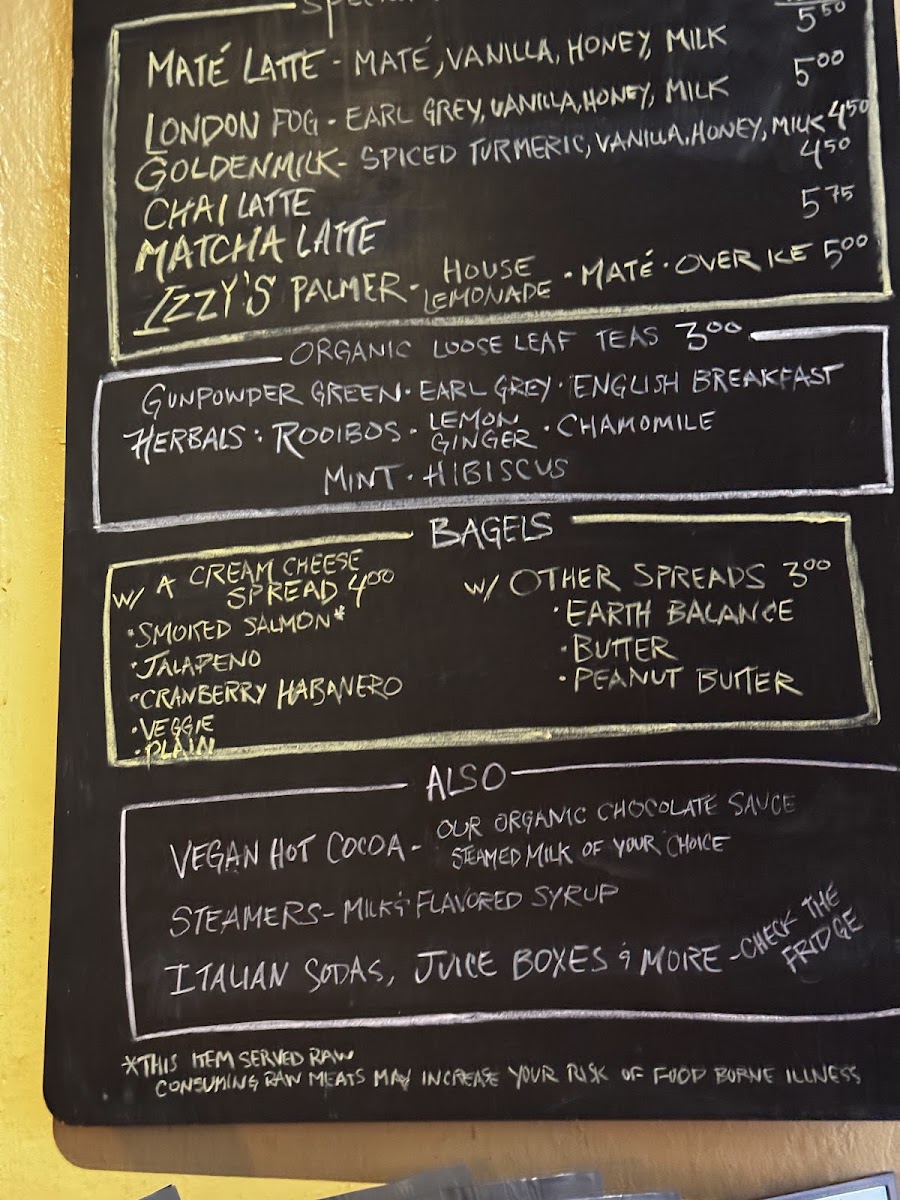 MATÉ LATTE - MATÉ, VANILLA, HONEY, MILK 5.50
LONDON FOG - EARL GREY, VANILLA, HONEY, MILK 5.00
GOLDENMILK - SPICED TURMERIC, VANILLA, HONEY, MILK 4.50
CHAI LATTE 4.50
MATCHA LATTE 5.75
IZZY'S PALMER - HOUSE LEMONADE · MATÉ · OVER ICE 5.00
ORGANIC LOOSE LEAF TEAS 3.00
GUNPOWDER GREEN · EARL GREY · ENGLISH BREAKFAST
HERBALS: ROOIBOS · LEMON GINGER · CHAMOMILE
MINT · HIBISCUS
BAGELS
W/ A CREAM CHEESE
SPREAD 4.00
· SMOKED SALMON*
· JALAPENO
· CRANBERRY HABANERO
· VEGGIE
· PLAIN
W/ OTHER SPREADS 3.00
· EARTH BALANCE
· BUTTER
· PEANUT BUTTER
ALSO
VEGAN HOT COCOA - OUR ORGANIC CHOCOLATE SAUCE
STEAMED MILK OF YOUR CHOICE
STEAMERS - MILK & FLAVORED SYRUP
ITALIAN SODAS, JUICE BOXES & MORE - CHECK THE FRIDGE
*THIS ITEM SERVED RAW
CONSUMING RAW MEATS MAY INCREASE YOUR RISK OF FOOD BORNE ILLNESS